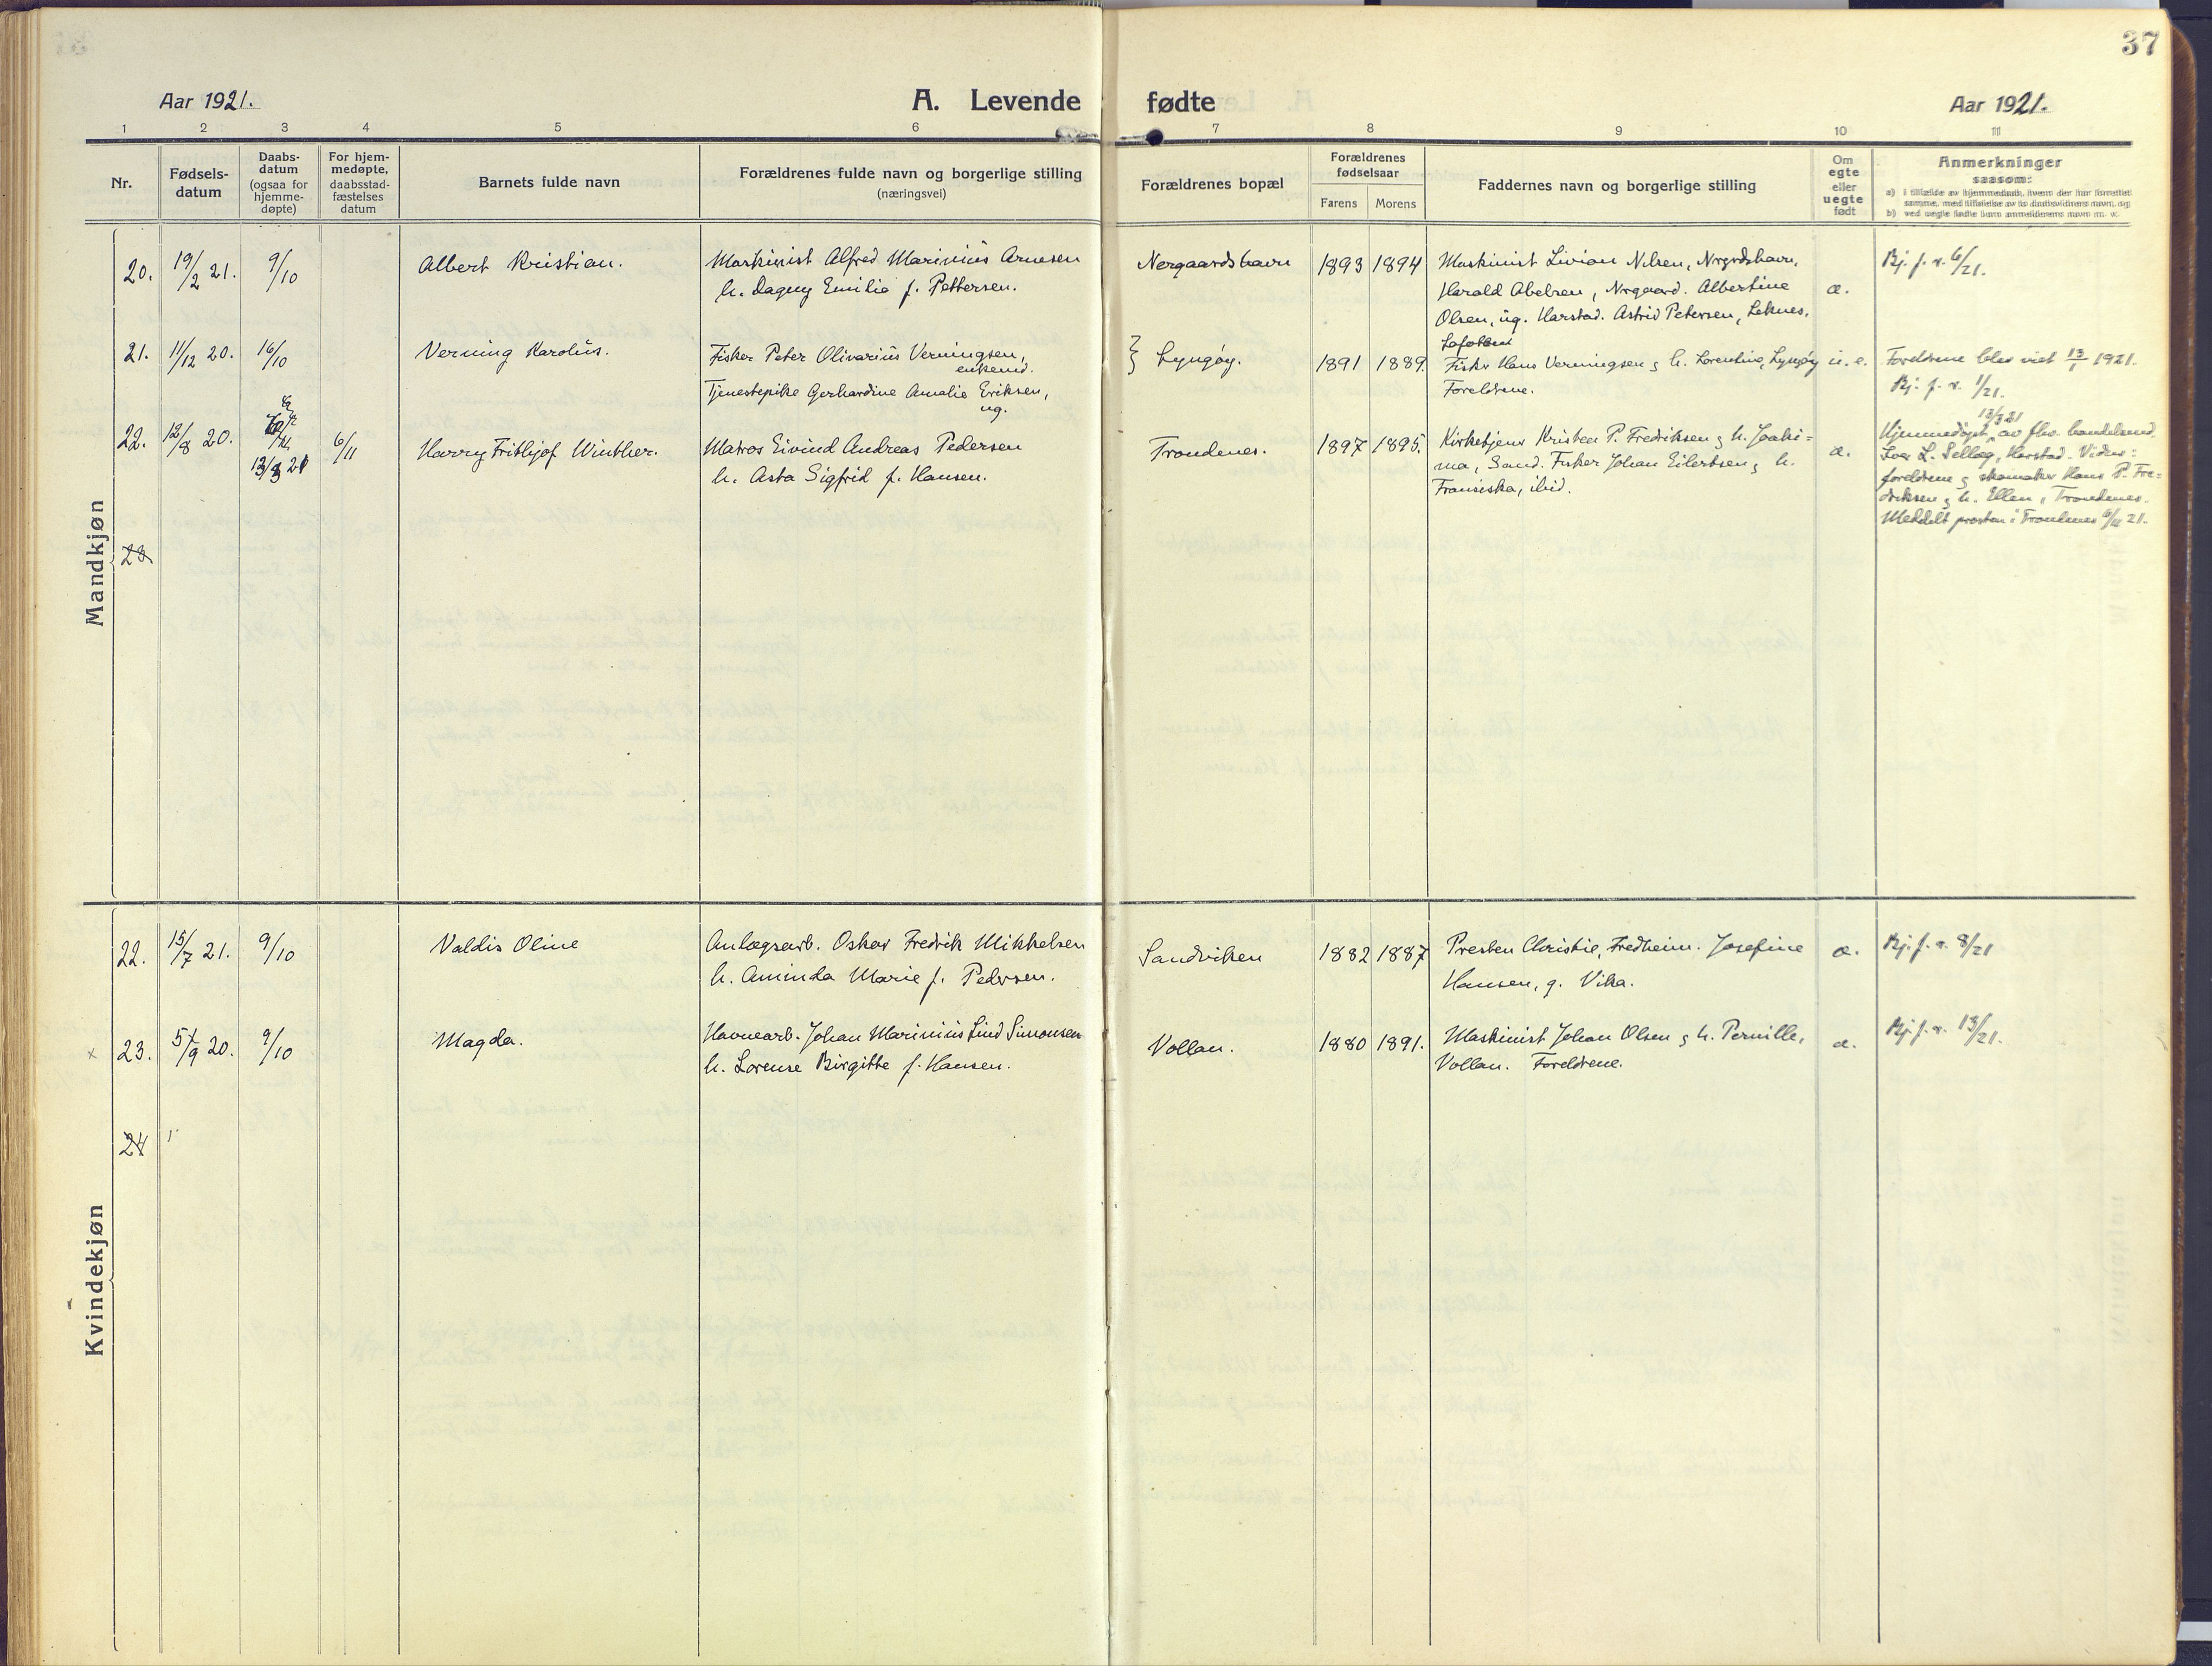 37
Aar 1921.
A. Levende fødte
Aar 1921.
1 2 3 4 5 6 7 8 9 10 11
Nr.
Fødsels-
datum
Daabs-
datum
(ogsaa for
hjemme-
døpte)
For hjem-
medøpte,
daabsstad-
fæstelses
datum
Barnets fulde navn
Forældrenes fulde navn og borgerlige stilling
(næringsvei)
Forældrenes bopæl
Forældrenes
fødselsaar
Farens Morens
Faddernes navn og borgerlige stilling
Om
egte
eller
uegte
født
Anmerkninger
saasom:
a) i tilfælde av hjemmedaab, hvem der har forrettet
samme, med tilføielse av to daabsvidners navn, og
b) ved uegte fødte barn anmelderens navn m. v.
Mandkjøn
20. 19/2 21. 9/10 Albert Kristian.
Maskinist Alfred Marinius Arnesen
h. Dagny Emilie f. Pettersen.
Nergaardshavn 1893 1894
Maskinist Livian Nilsen, Nrgrdshavn.
Harald Abelsen, Nrgaard. Albertine
Olsen, ug. Harstad. Astrid Petersen, Leknes,
Lofoten
æ.
Bj. f. v. 6/21.
21. 11/12 20. 16/10 Verning Karolius.
Fisker Peter Olivarius Verningsen,
enkemd.
Tjenestepike Gerhardine Amalie Eriksen,
ug.
Lyngøy. 1891 1889.
Fisker Hans Verningsen & h. Lorentine, Lyngøy
Foreldrene.
u. e.
Foreldrene blev viet 13/1 1921.
Bj. f. v. 1/21.
22. 12/8 20. 13/3 21 6/11 Harry Frithjof Winther.
Matros Eivind Andreas Pedersen
h. Asta Sigfrid f. Hansen.
Trondenes. 1897 1895.
Kirketjener Kristen P. Fredriksen & h. Joaki=
ma, Sand. Fisker Johan Eilertsen & h.
Fransiska, ibid.
æ.
13/3 21
Hjemmedøpt av fhv. handelsmd.
L. Sellæg, Harstad. Vidner:
foreldrene & skomaker Hans P. Fre=
driksen & h. Ellen, Trondenes.
Meddelt presten i Trondenes 6/11 21.
23
Kvindekjøn
22. 15/7 21. 9/10 Valdis Oline
Anlægsarb. Oskar Fredrik Mikkelsen
h. Aminda Marie f. Pedersen.
Sandviken 1882 1887
Presten Christie, Fredheim. Josefine
Hansen, g. Vika.
æ.
Bj. f. v. 8/21
x 23. 5/9 20. 9/10 Magda.
Havnearb. Johan Marinius Lind Simonsen
h. Lorense Birgitte f. Hansen.
Vollan. 1880 1891.
Maskinist Johan Olsen & h. Pernille,
Vollan. Foreldrene.
æ.
Bj. f. v. 13/21.
24